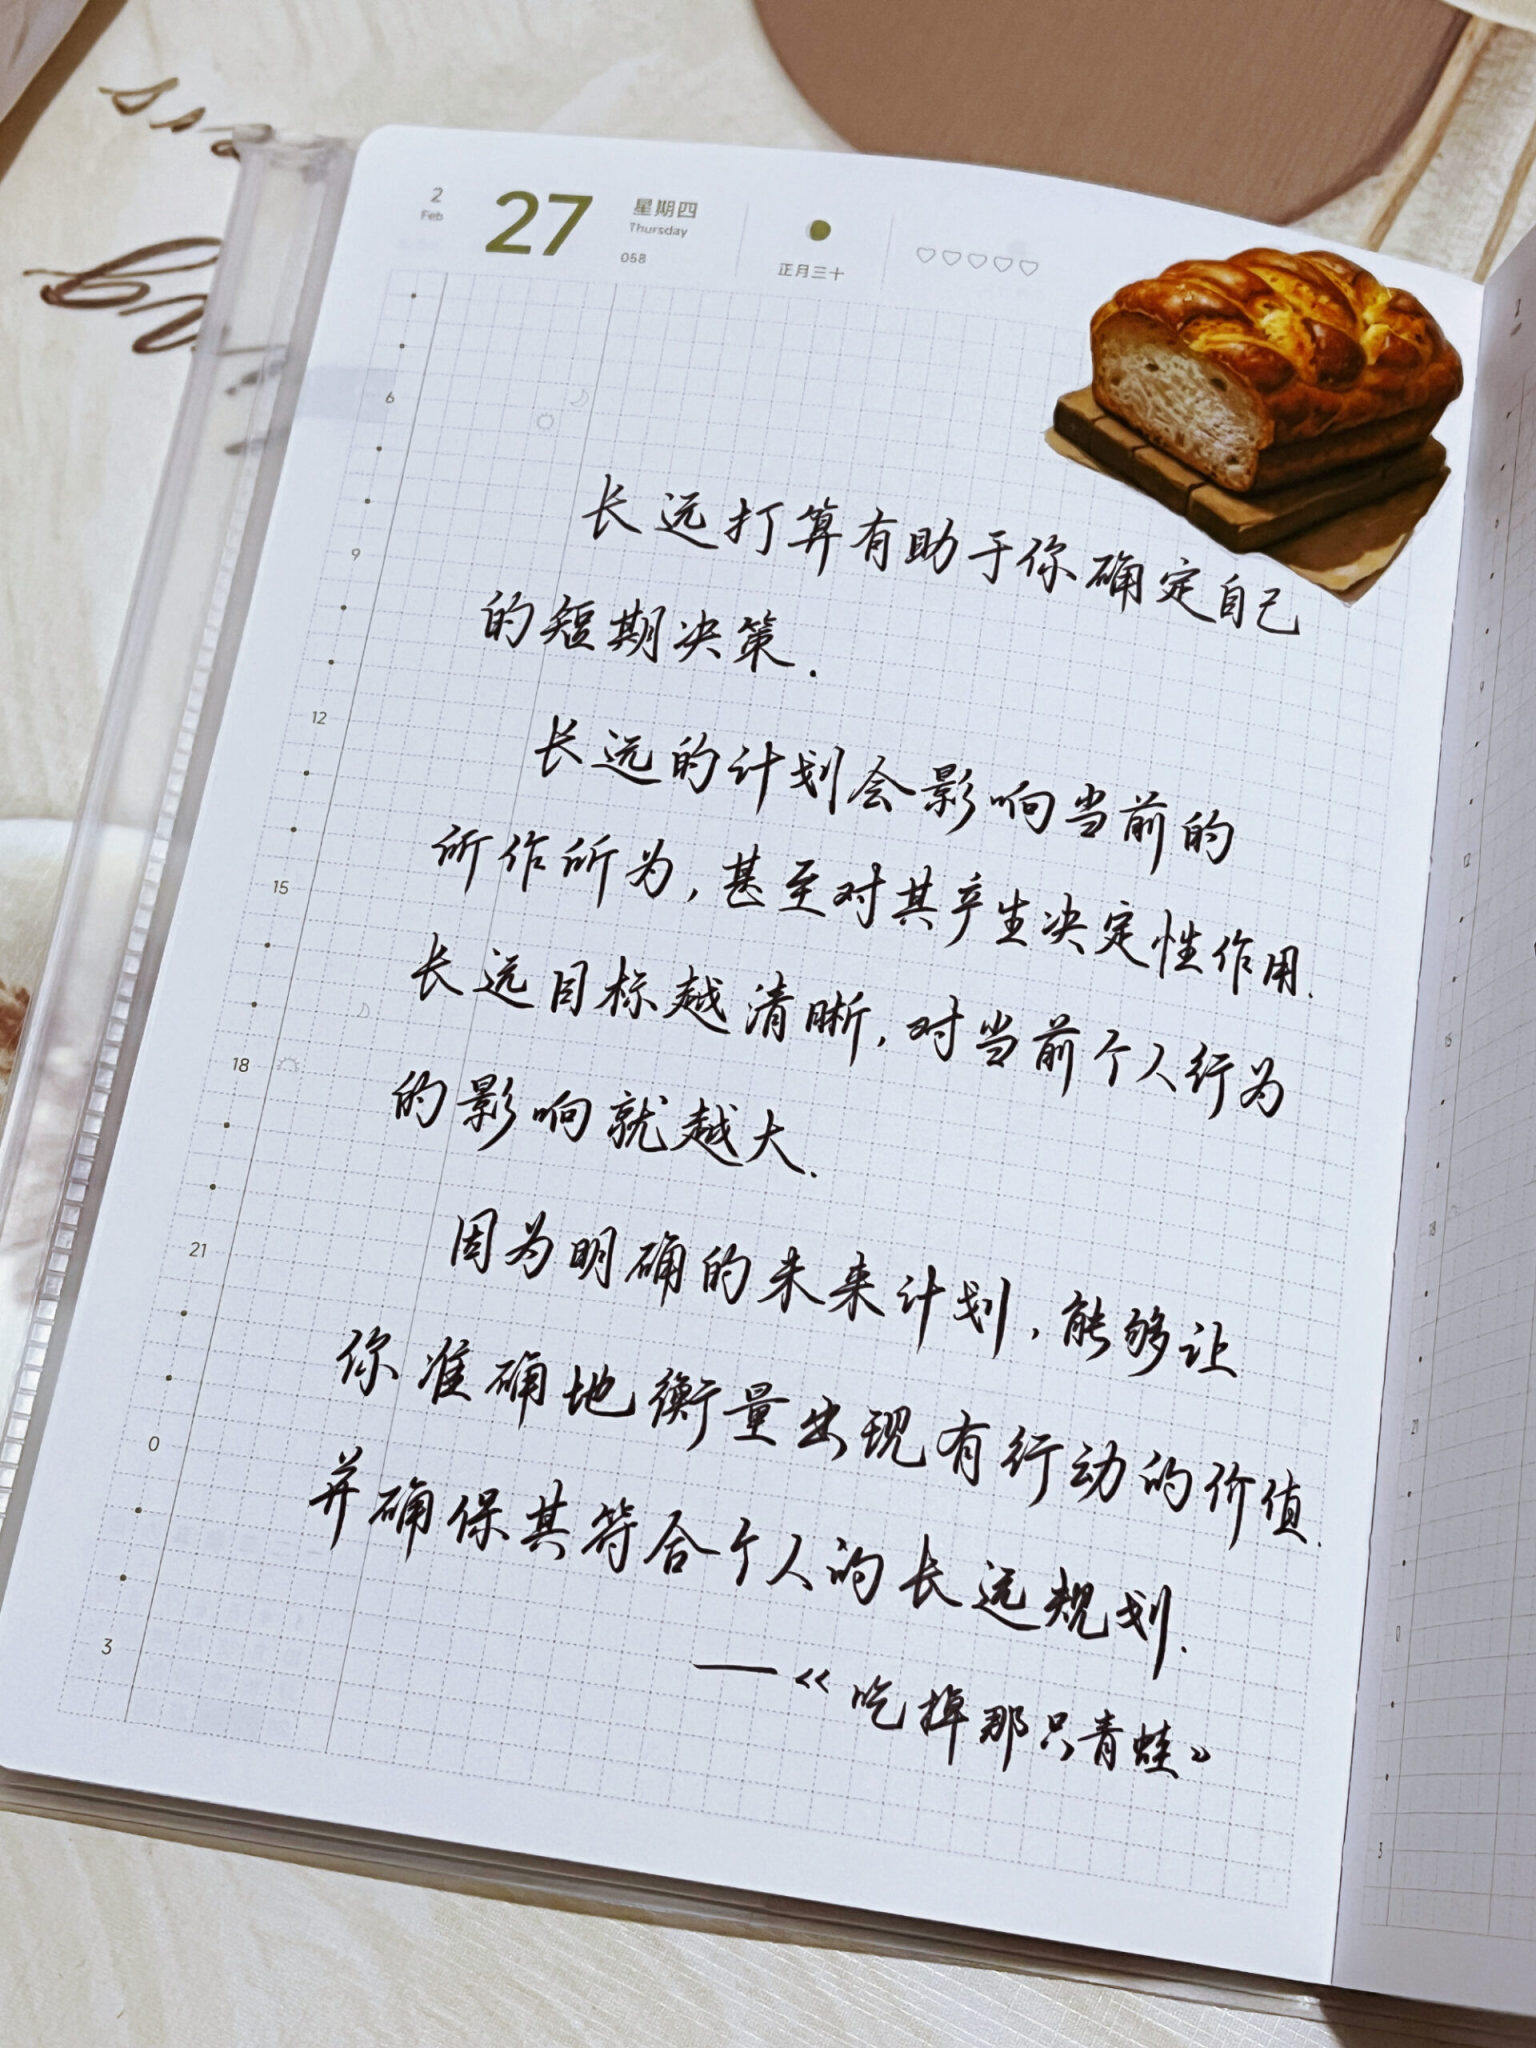 2
Feb
27
星期四
Thursday
058
正月三十
6
9
12
15
18
21
0
3
长远打算有助于你确定自己
的短期决策.
长远的计划会影响当前的
所作所为,甚至对其产生决定性作用.
长远目标越清晰,对当前个人行为
的影响就越大.
因为明确的未来计划,能够让
你准确地衡量出现有行动的价值.
并确保其符合个人的长远规划.
——《吃掉那只青蛙》